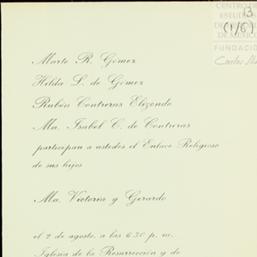 13
(1/6)
CENTRO DE
ESTUDIOS
DE MÉXICO
FUNDACIÓN
Marte R. Gómez
Hilda L. de Gómez
Rubén Contreras Elizondo
Ma. Isabel C. de Contreras
participan a ustedes el Enlace Religioso
de sus hijos
Ma. Victoria y Gerardo
el 2 de agosto, a las 6.30 p. m.
Iglesia de la Resurrección y de